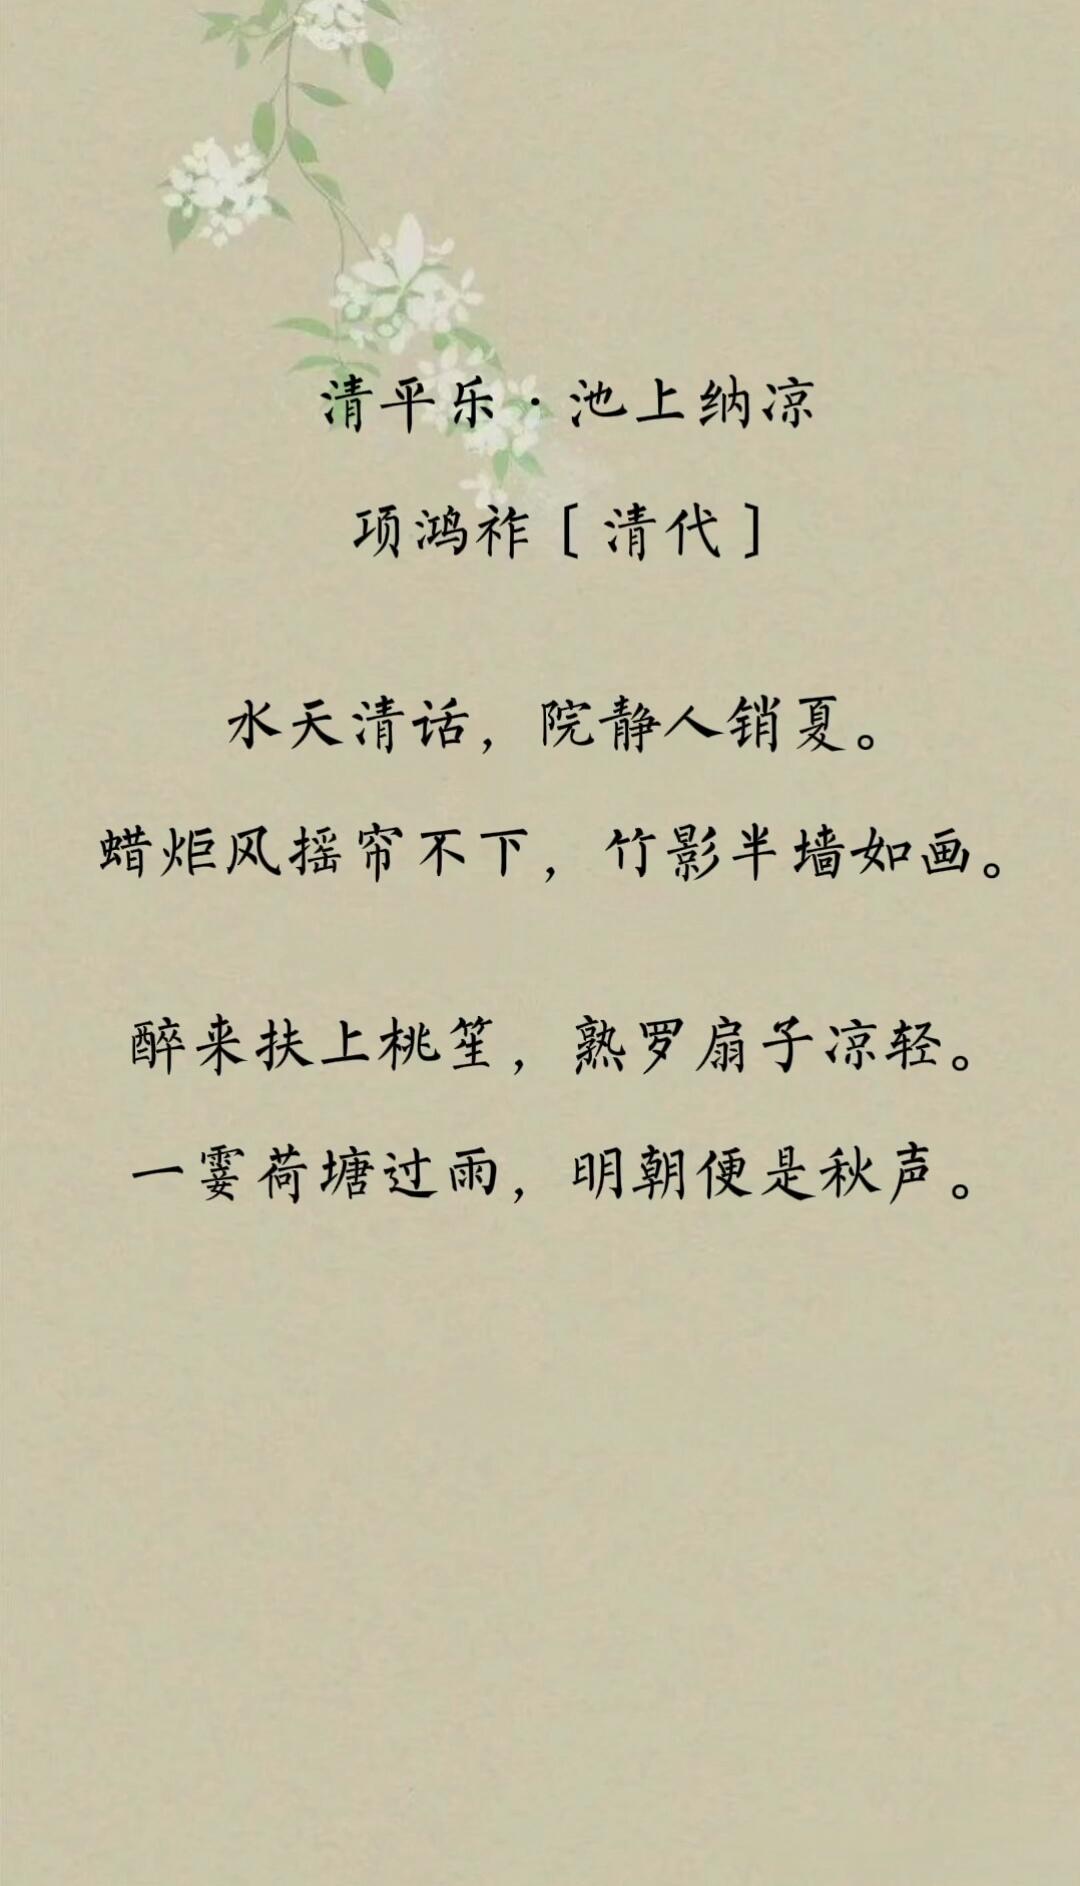 清平乐·池上纳凉
项鸿祚［清代］
水天清话，院静人销夏。
蜡炬风摇帘不下，竹影半墙如画。
醉来扶上桃笙，熟罗扇子凉轻。
一霎荷塘过雨，明朝便是秋声。